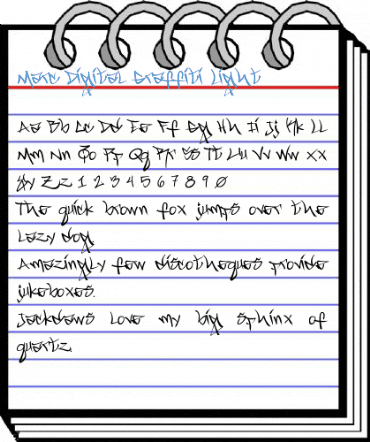 Marc Digital Graffiti Light
Aa Bb Cc Dd Ee Ff Gg Hh Ii Jj Kk LL
Mm Nn Oo Pp Qq Rr Ss Tt Uu Vv Ww Xx
Yy Zz 1 2 3 4 5 6 7 8 9 0
The quick brown fox jumps over the
Lazy dog.
Amazingly few discotheques provide
jukeboxes.
Jackdaws Love my big sphinx of
quartz.